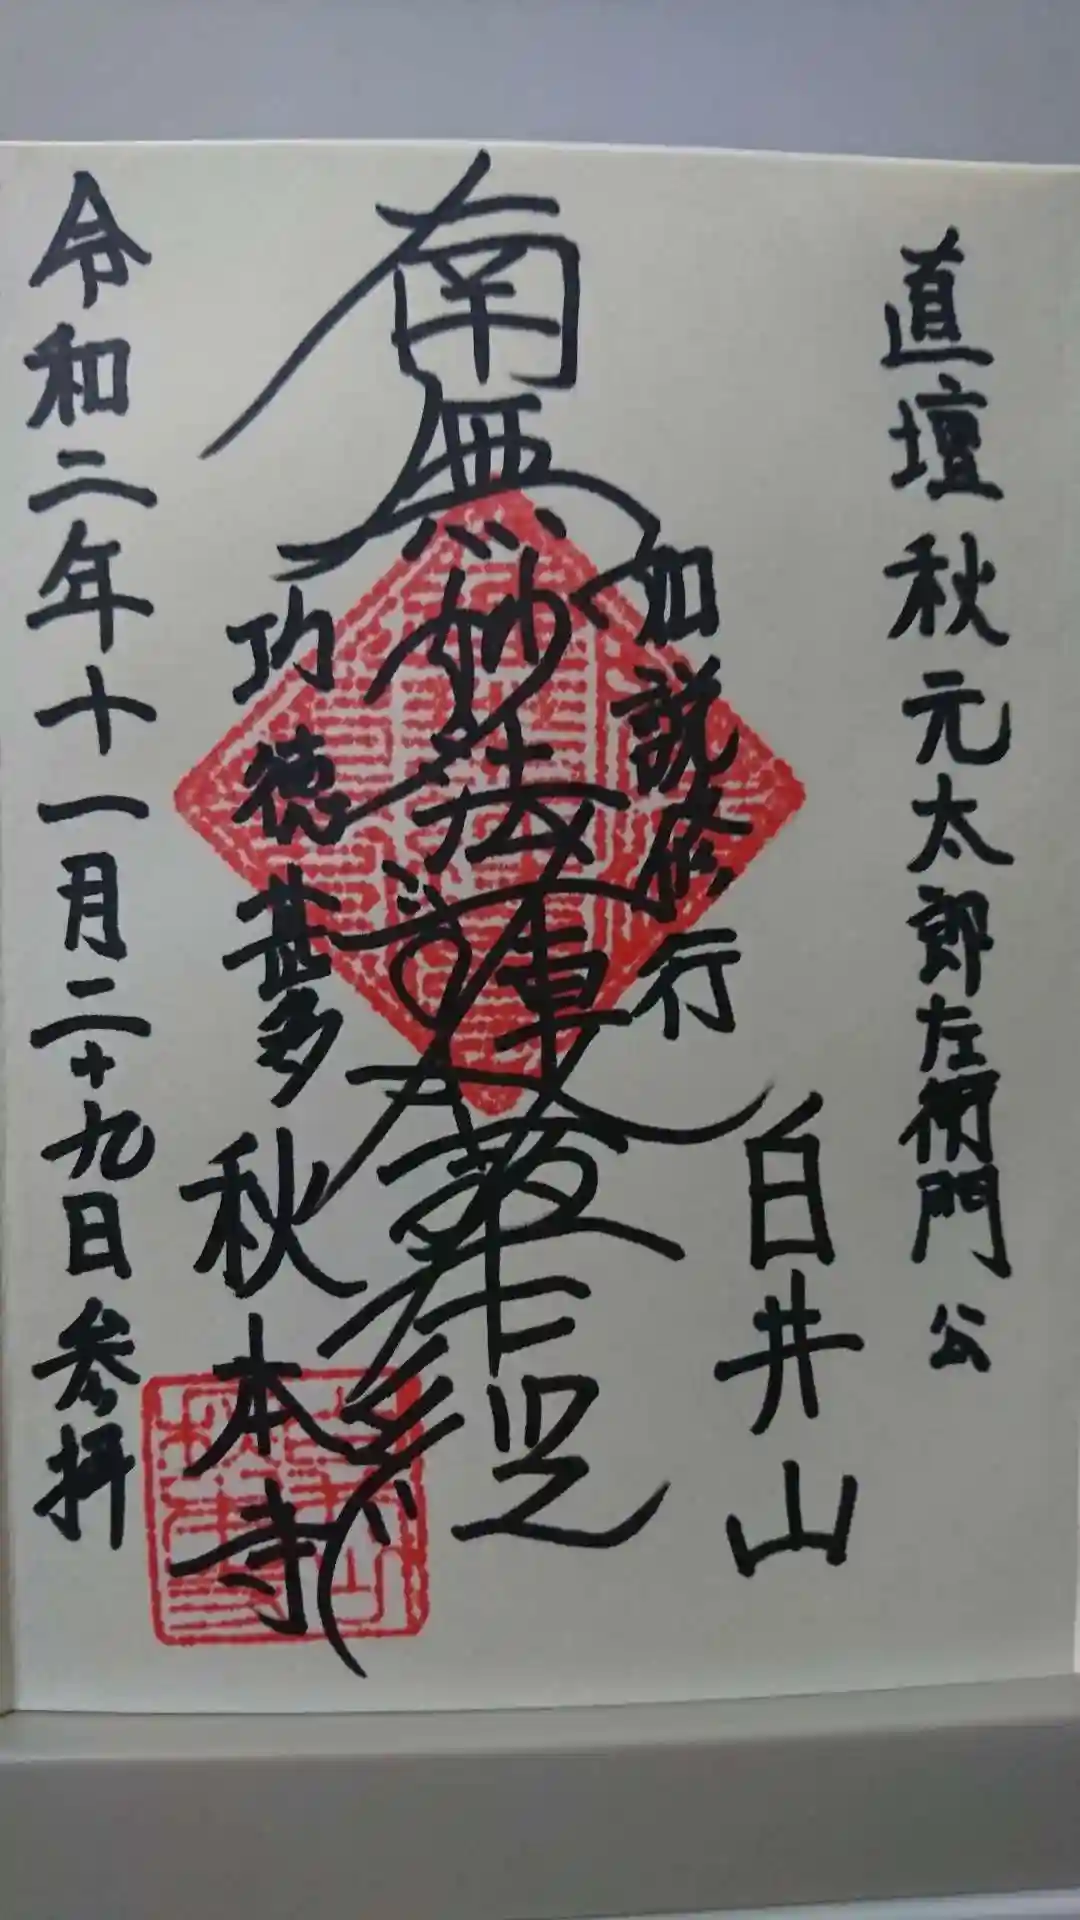 直壇秋元太郎左衛門公
如説修行
白井山
南無妙法蓮華経
功徳甚多
秋本寺
令和二年十一月二十九日参拝